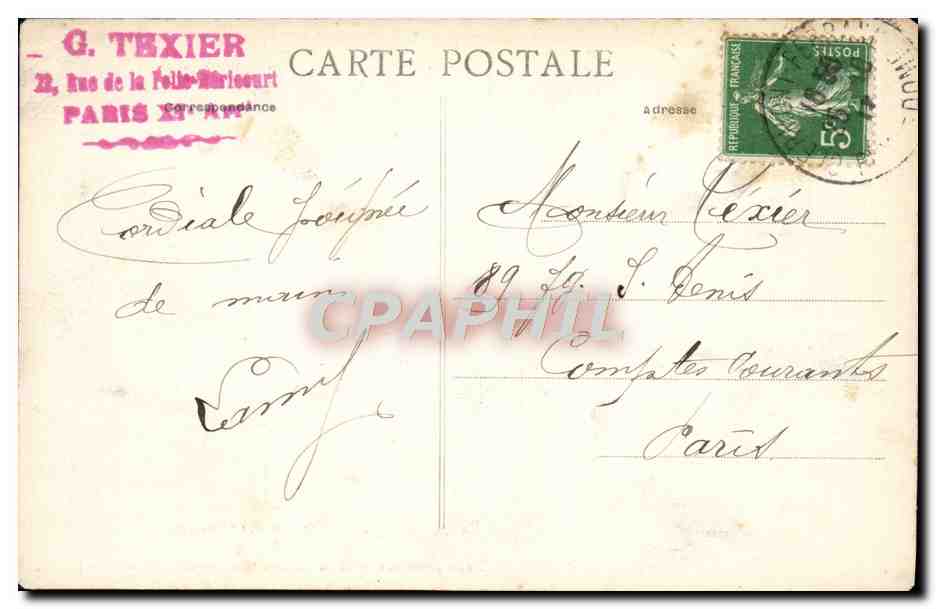 G. TEXIER
22, Rue de la Folie-Méricourt
PARIS XIe ARt
CARTE POSTALE
Correspondance
Adresse
RÉPUBLIQUE FRANÇAISE
POSTES
5c
Cordiale poignée
de mains
Monsieur Téxier
89 fg. S. Denis
Comptes Courants
Paris
CPAPHIL